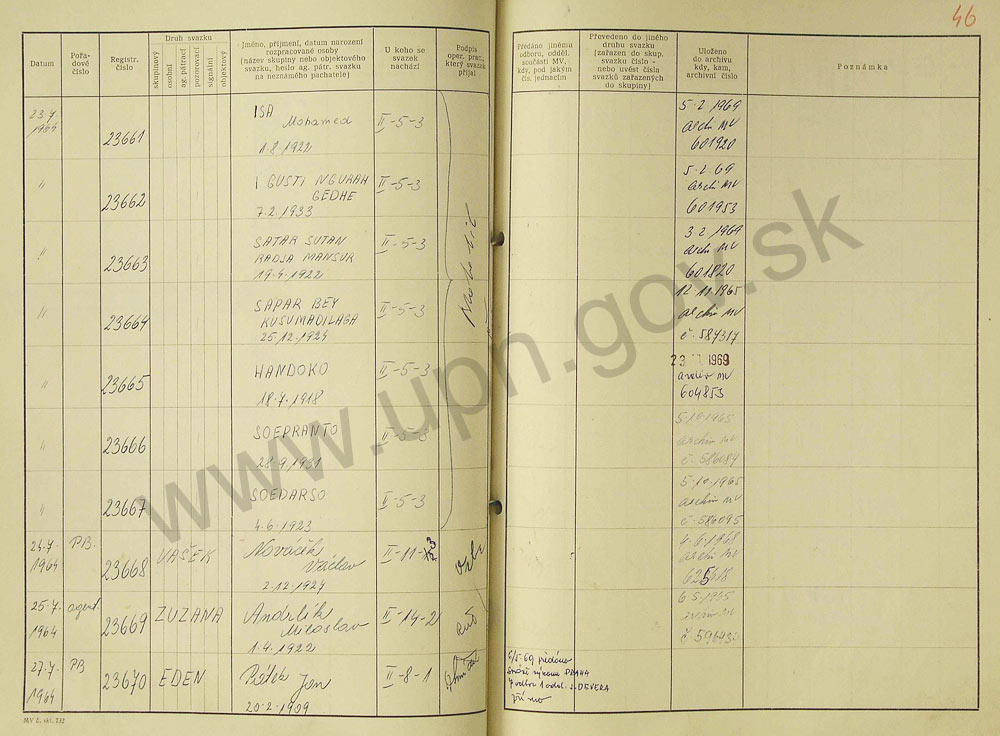 46
Datum
Pořa-
dové
číslo
Registr.
číslo
Druh svazku
skupinový
osobní
ag. pátrací
pozorovací
signální
objektový
Jméno, příjmení, datum narození
rozpracované osoby
(název skupiny nebo objektového
svazku, heslo ag. pátr. svazku
na neznámého pachatele)
U koho se
svazek
nachází
Podpis
oper. prac.,
který svazek
přijal
Předáno jinému
odboru, odděl.
součásti MV,
kdy, pod jakým
čís. jednacím
Převedeno do jiného
druhu svazku
(zařazen do skup.
svazku číslo -
nebo uvést čísla
svazků zařazených
do skupiny)
Uloženo
do archivu
kdy, kam,
archivní číslo
Poznámka
23.7
1964
23661
ISA
Mohamed
1.8.1922
II-5-3
5-2 1969
archiv MV
601920
"
23662
I GUSTI NGURAH
GEDHE
7.2.1933
II-5-3
5-2.69
archiv MV
601953
"
23663
SATAR SUTAN
RADJA MANSUR
19.4.1922
II-5-3
3-2.1969
archiv MV
601820
"
23664
SAPAR BEY
KUSUMADILAGA
25.12.1924
II-5-3
12.11.1965
archiv MV
č. 587317
"
23665
HANDOKO
18.7.1918
II-5-3
1969
archiv MV
604853
"
23666
SOEPRANTO
28.9.1931
II-5-3
5.10.1965
archiv MV
č. 586084
"
23667
SOEDARSO
4.6.1923
II-5-3
5.10.1965
archiv MV
č. 586095
24.7.
1964
PB.
23668
VAŠEK
Nováček
Václav
2.12.1924
II-11-
4.6.1968
archiv MV
625618
25.7.
1964
agent.
23669
ZUZANA
Andrlík
Miloslav
1.4.1922
II-14-2
6.5.1965
archiv MV
27.7.
1964
PB
23670
EDEN
Pátek
Jan
20-2-1909
II-8-1
6/5-69 předáno
správě výkonu PRAHA
7 odbor 1 odděl. s. DEVERA
MV č. skl. 732
www.upn.gov.sk